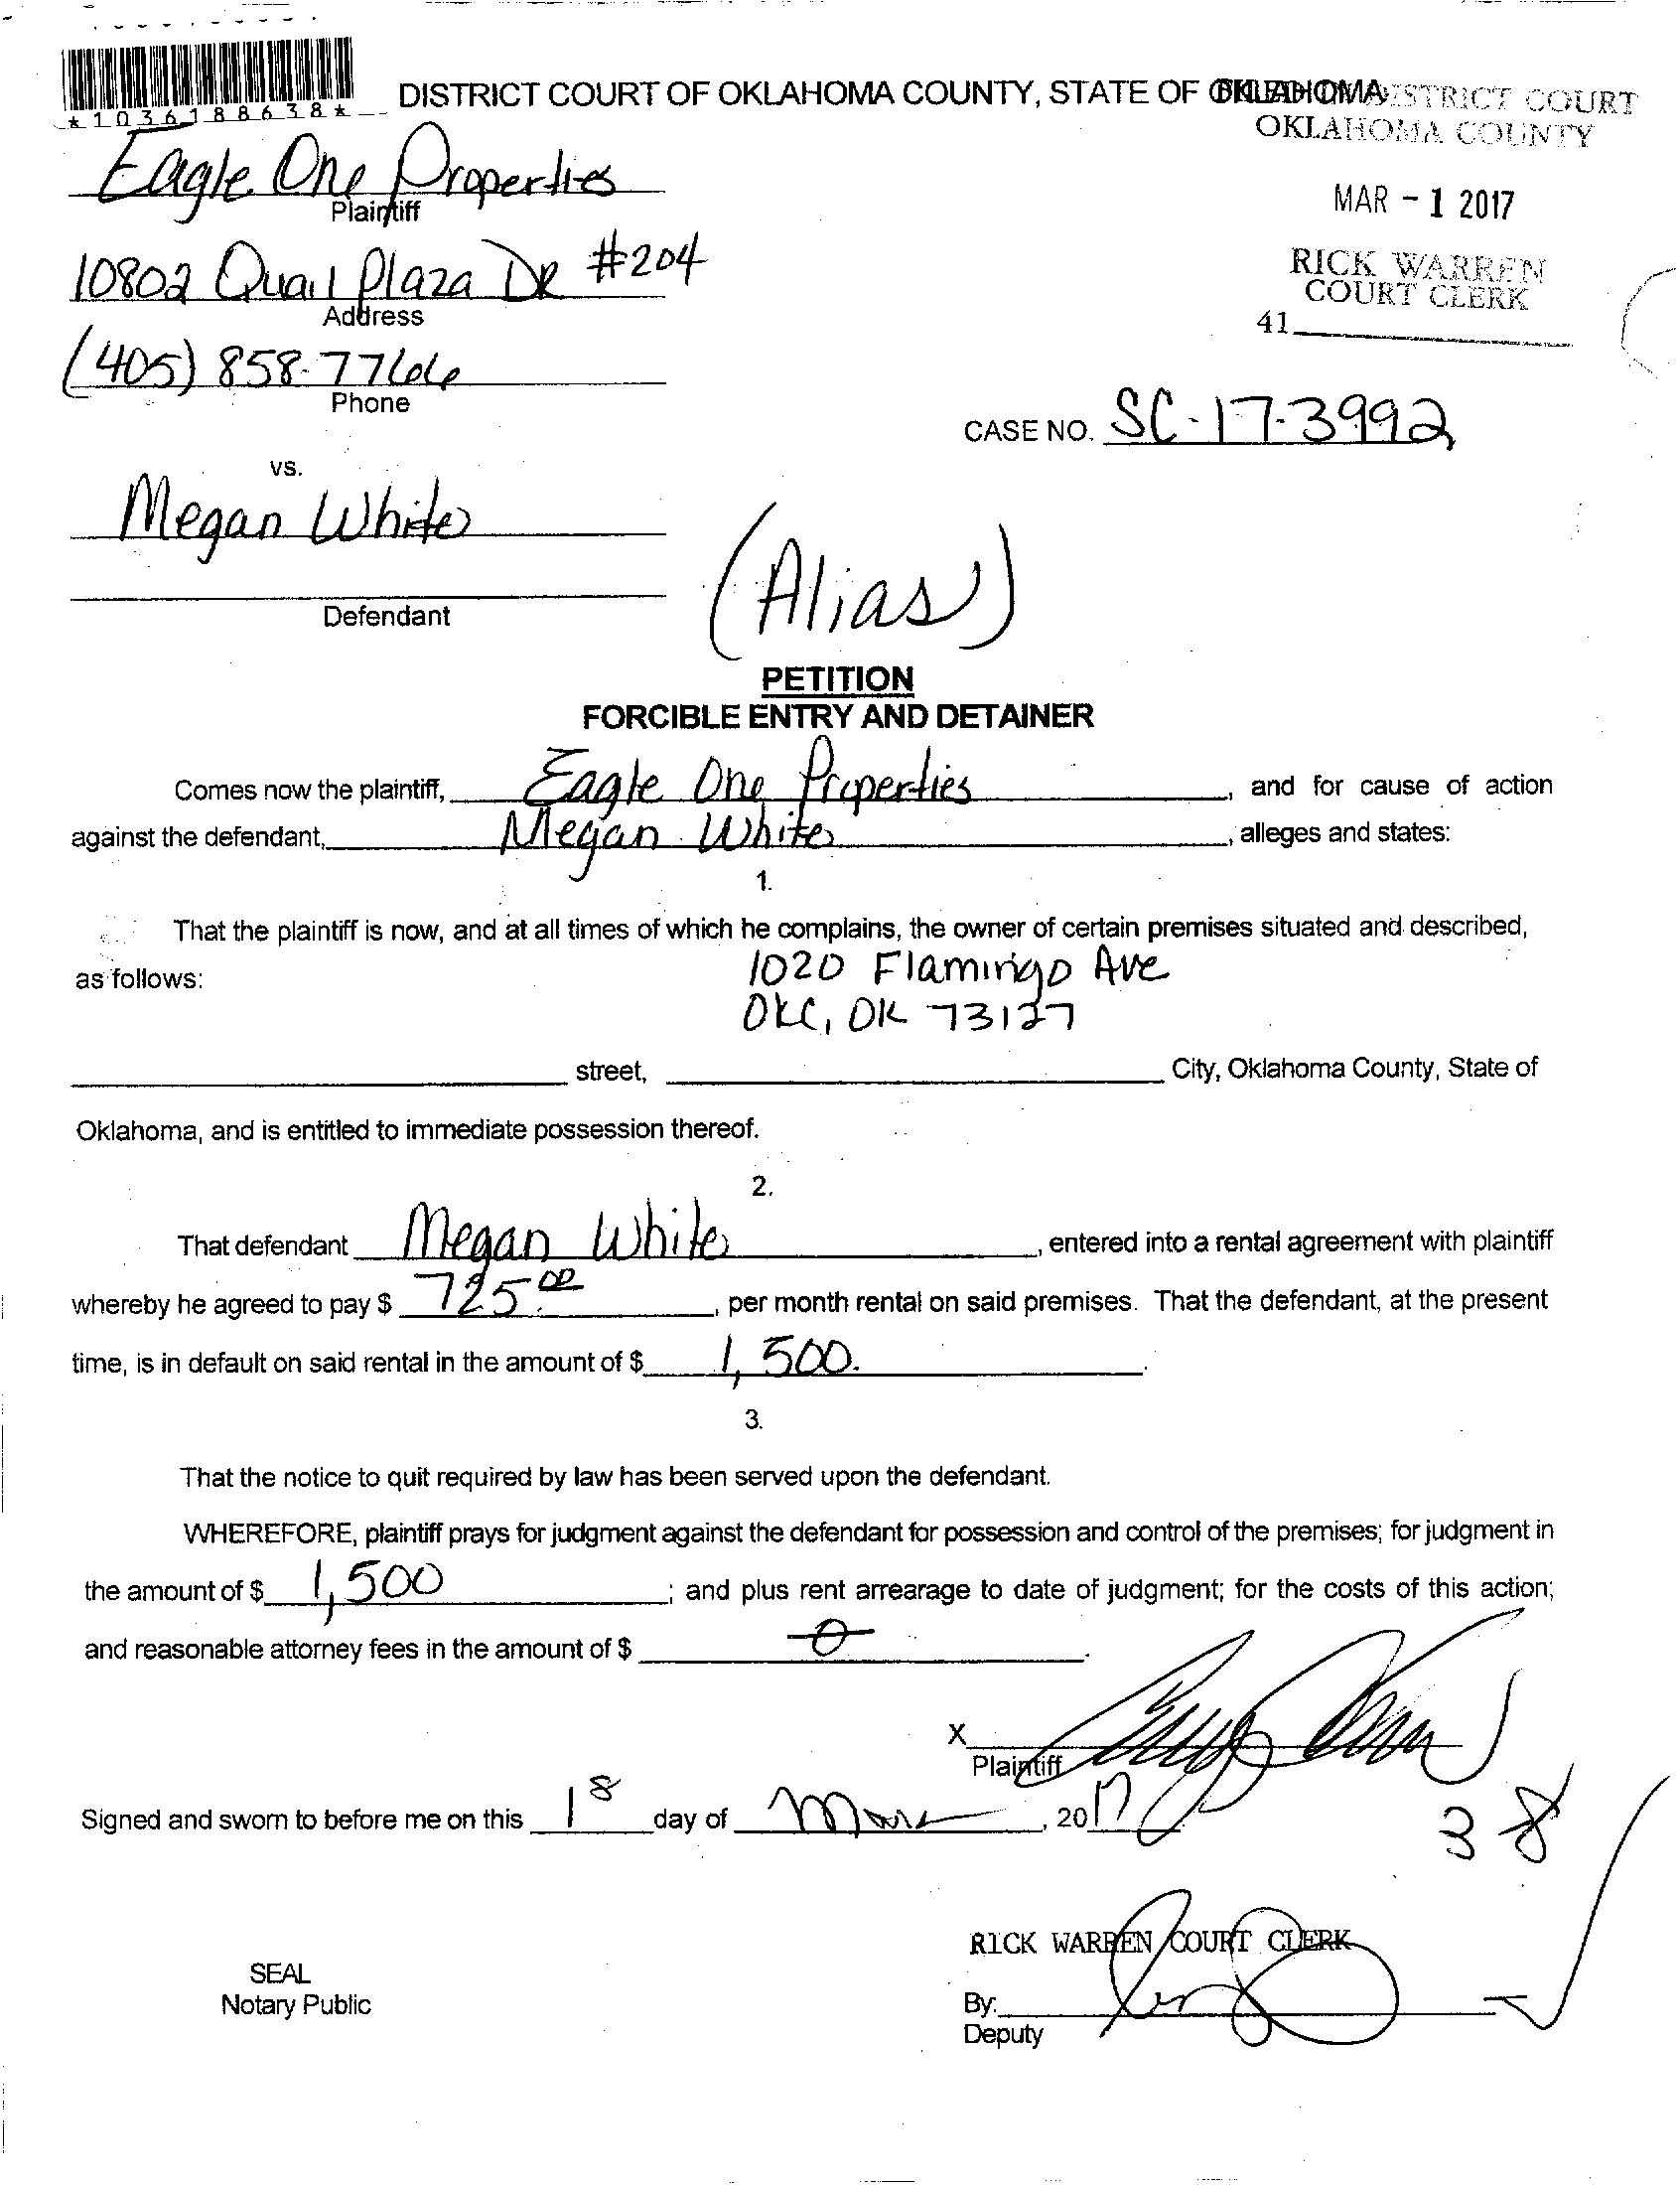 *1036188638*
DISTRICT COURT OF OKLAHOMA COUNTY, STATE OF OKLAHOMA
DISTRICT COURT
OKLAHOMA COUNTY
MAR - 1 2017
RICK WARREN
COURT CLERK
41
Eagle One Properties
Plaintiff
10802 Quail Plaza DR #204
Address
(405) 858-7766
Phone
CASE NO. SC-17-3992
vs.
Megan White
Defendant
(Alias)
PETITION
FORCIBLE ENTRY AND DETAINER
Comes now the plaintiff, Eagle One Properties, and for cause of action
against the defendant, Megan White, alleges and states:
1.
That the plaintiff is now, and at all times of which he complains, the owner of certain premises situated and described,
as follows: 1020 Flamingo Ave
OKC, OK 73127
street, City, Oklahoma County, State of
Oklahoma, and is entitled to immediate possession thereof.
2.
That defendant Megan White, entered into a rental agreement with plaintiff
whereby he agreed to pay $ 725.00, per month rental on said premises. That the defendant, at the present
time, is in default on said rental in the amount of $ 1,500.
3.
That the notice to quit required by law has been served upon the defendant.
WHEREFORE, plaintiff prays for judgment against the defendant for possession and control of the premises; for judgment in
the amount of $ 1,500; and plus rent arrearage to date of judgment; for the costs of this action;
and reasonable attorney fees in the amount of $ 0.
X
Plaintiff
Signed and sworn to before me on this 1 day of Mar, 2017
3 8
RICK WARREN COURT CLERK
SEAL
Notary Public
By:
Deputy